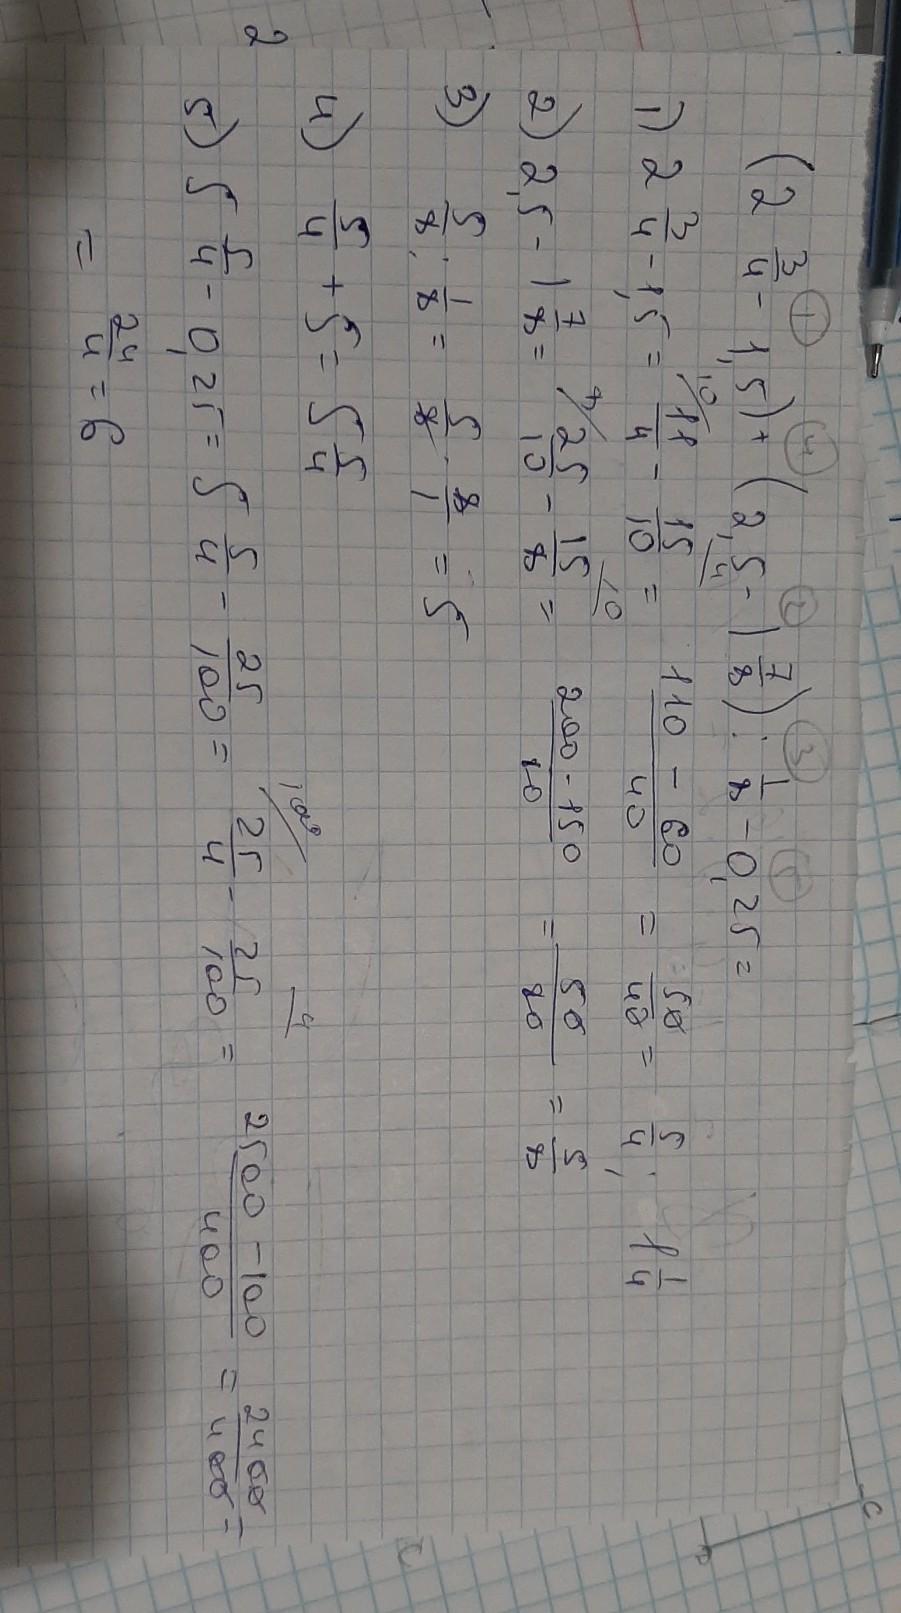 (2 3/4 - 1,5) + (2,5 - 1 7/8) : 1/8 - 0,25 =
1) 2 3/4 - 1,5 = 11/4 - 15/10 = 110 - 60/40 = 50/40 = 5/4; 1 1/4
2) 2,5 - 1 7/8 = 25/10 - 15/8 = 200 - 150/80 = 50/80 = 5/8
3) 5/8 : 1/8 = 5/8 · 8/1 = 5
4) 5/4 + 5 = 5 5/4
5) 5 5/4 - 0,25 = 5 5/4 - 25/100 = 25/4 - 25/100 = 2500 - 100/400 = 2400/400 =
= 24/4 = 6
2
C